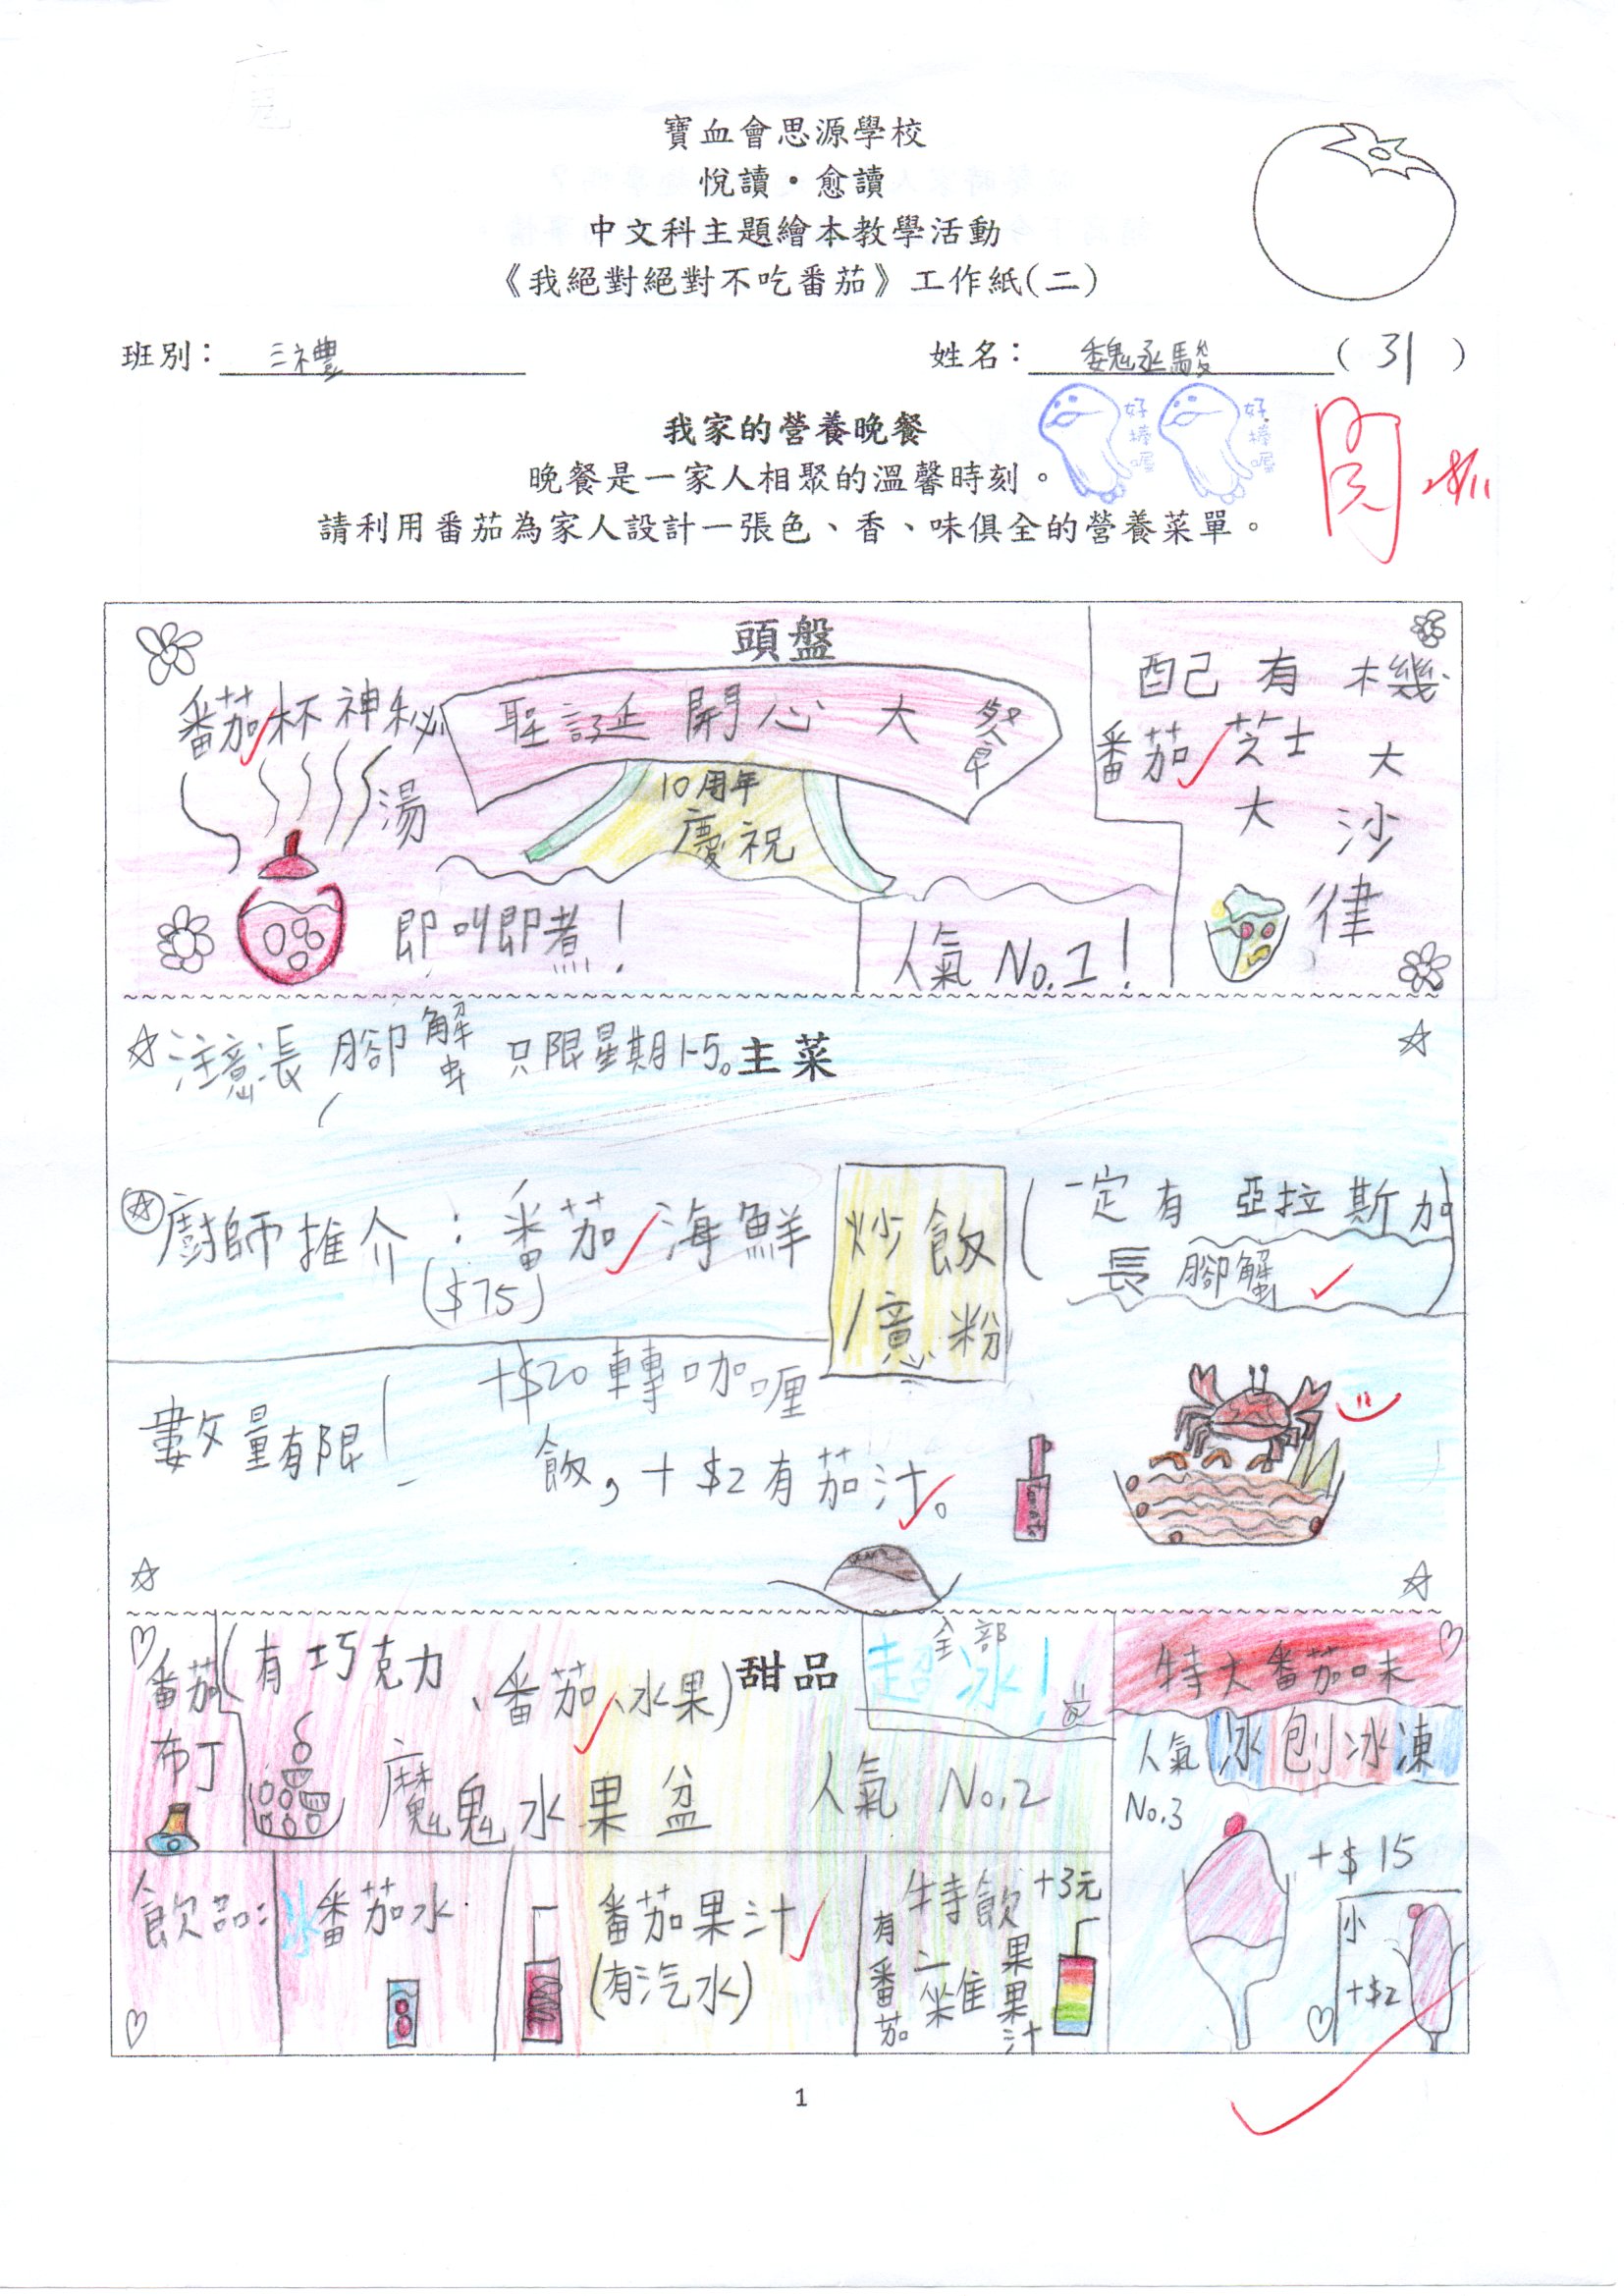 寶血會思源學校
悅讀•愈讀
中文科主題繪本教學活動
《我絕對絕對不吃番茄》工作紙(二)
班別：三禮
姓名：魏丞駿(31)
我家的營養晚餐
晚餐是一家人相聚的溫馨時刻。
請利用番茄為家人設計一張色、香、味俱全的營養菜單。
好棒喔
好棒喔
閱
頭盤
番茄杯神秘湯
即叫即煮！
聖誕開心大餐
10周年
慶祝
人氣 No.1！
配己有機
番茄芝士大
大沙律
主菜
注意長腳蟹只限星期1-5。
廚師推介：番茄海鮮
($75)
炒飯/意粉
(一定有亞拉斯加
長腳蟹)
數量有限！
+$20轉咖喱
飯，+$2有茄汁。
tomato
甜品
番茄布丁
(有巧克力、番茄、水果)
魔鬼水果盆
人氣 No.2
全部
超冰！
特大番茄味
冰刨冰凍
人氣
No.3
+$15
小
+$2
飲品：
冰番茄水
番茄果汁
(有汽水)
特飲 +3元
有番茄
果果汁
1